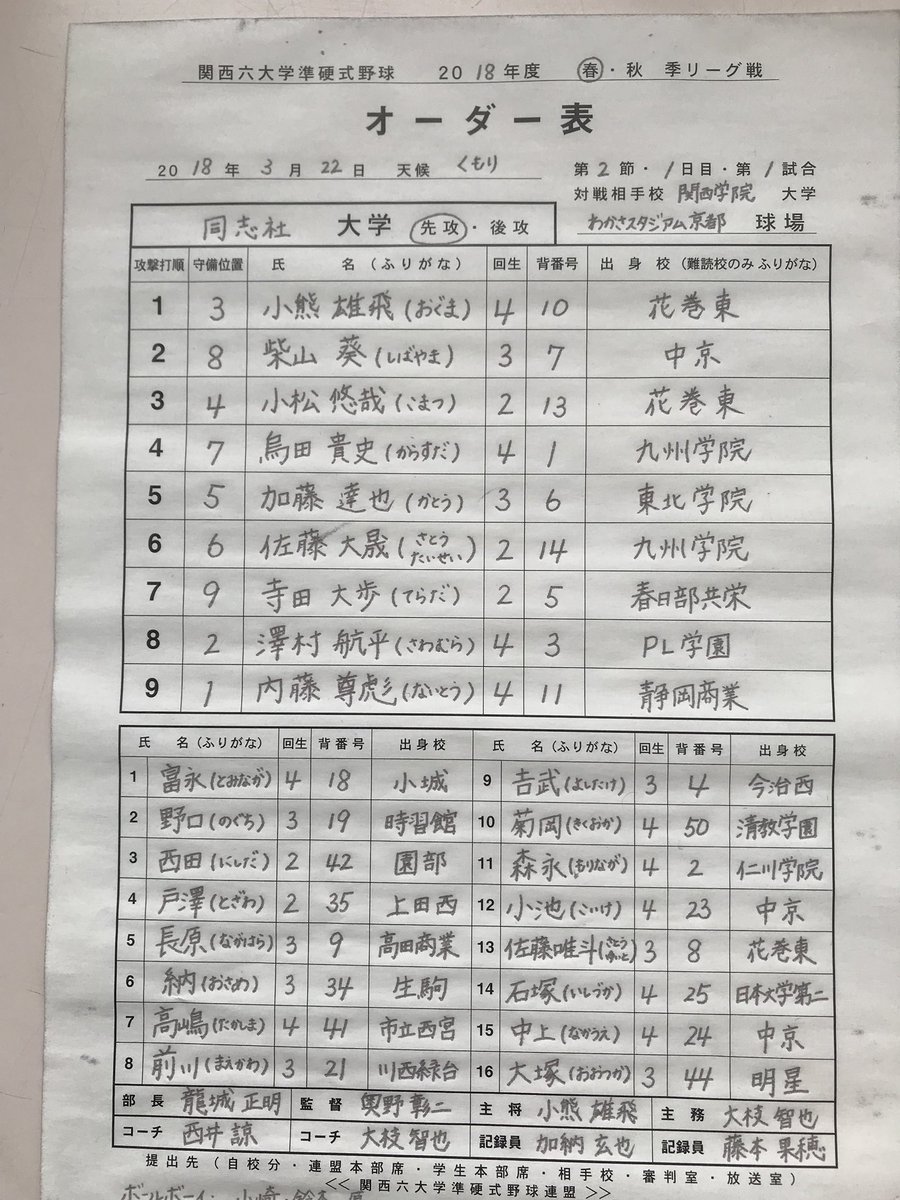 関西六大学準硬式野球 2018年度 春・秋 季リーグ戦
オーダー表
2018年3月22日 天候 くもり
第2節・1日目・第1試合
対戦相手校 関西学院 大学
同志社 大学 先攻・後攻
わかさスタジアム京都 球場
攻撃打順 守備位置 氏 名(ふりがな) 回生 背番号 出身校(難読校のみふりがな)
1 3 小熊 雄飛(おぐま) 4 10 花巻東
2 8 柴山 葵(しばやま) 3 7 中京
3 4 小松 悠哉(こまつ) 2 13 花巻東
4 7 烏田 貴史(からすだ) 4 1 九州学院
5 5 加藤 達也(かとう) 3 6 東北学院
6 6 佐藤 大晟(さとうたいせい) 2 14 九州学院
7 9 寺田 大歩(てらだ) 2 5 春日部共栄
8 2 澤村 航平(さわむら) 4 3 PL学園
9 1 内藤 尊彪(ないとう) 4 11 静岡商業
氏 名(ふりがな) 回生 背番号 出身校 氏 名(ふりがな) 回生 背番号 出身校
1 富永(とみなが) 4 18 小城 9 吉武(よしたけ) 3 4 今治西
2 野口(のぐち) 3 19 時習館 10 菊岡(きくおか) 4 50 清教学園
3 西田(にしだ) 2 42 園部 11 森永(もりなが) 4 2 仁川学院
4 戸澤(とざわ) 2 35 上田西 12 小池(こいけ) 4 23 中京
5 長原(ながはら) 3 9 高田商業 13 佐藤唯斗(さとうゆいと) 3 8 花巻東
6 納(おさめ) 3 34 生駒 14 石塚(いしづか) 4 25 日本大学第二
7 高嶋(たかしま) 4 41 市立西宮 15 中上(なかうえ) 4 24 中京
8 前川(まえかわ) 3 21 川西緑台 16 大塚(おおつか) 3 44 明星
部長 龍城 正明 監督 奥野 彰二 主将 小熊 雄飛 主務 大枝 智也
コーチ 西井 諒 コーチ 大枝 智也 記録員 加納 玄也 記録員 藤本 果穂
提出先(自校分・連盟本部席・学生本部席・相手校・審判室・放送室)
<< 関西六大学準硬式野球連盟 >>
ボールボーイ:小崎・鈴木